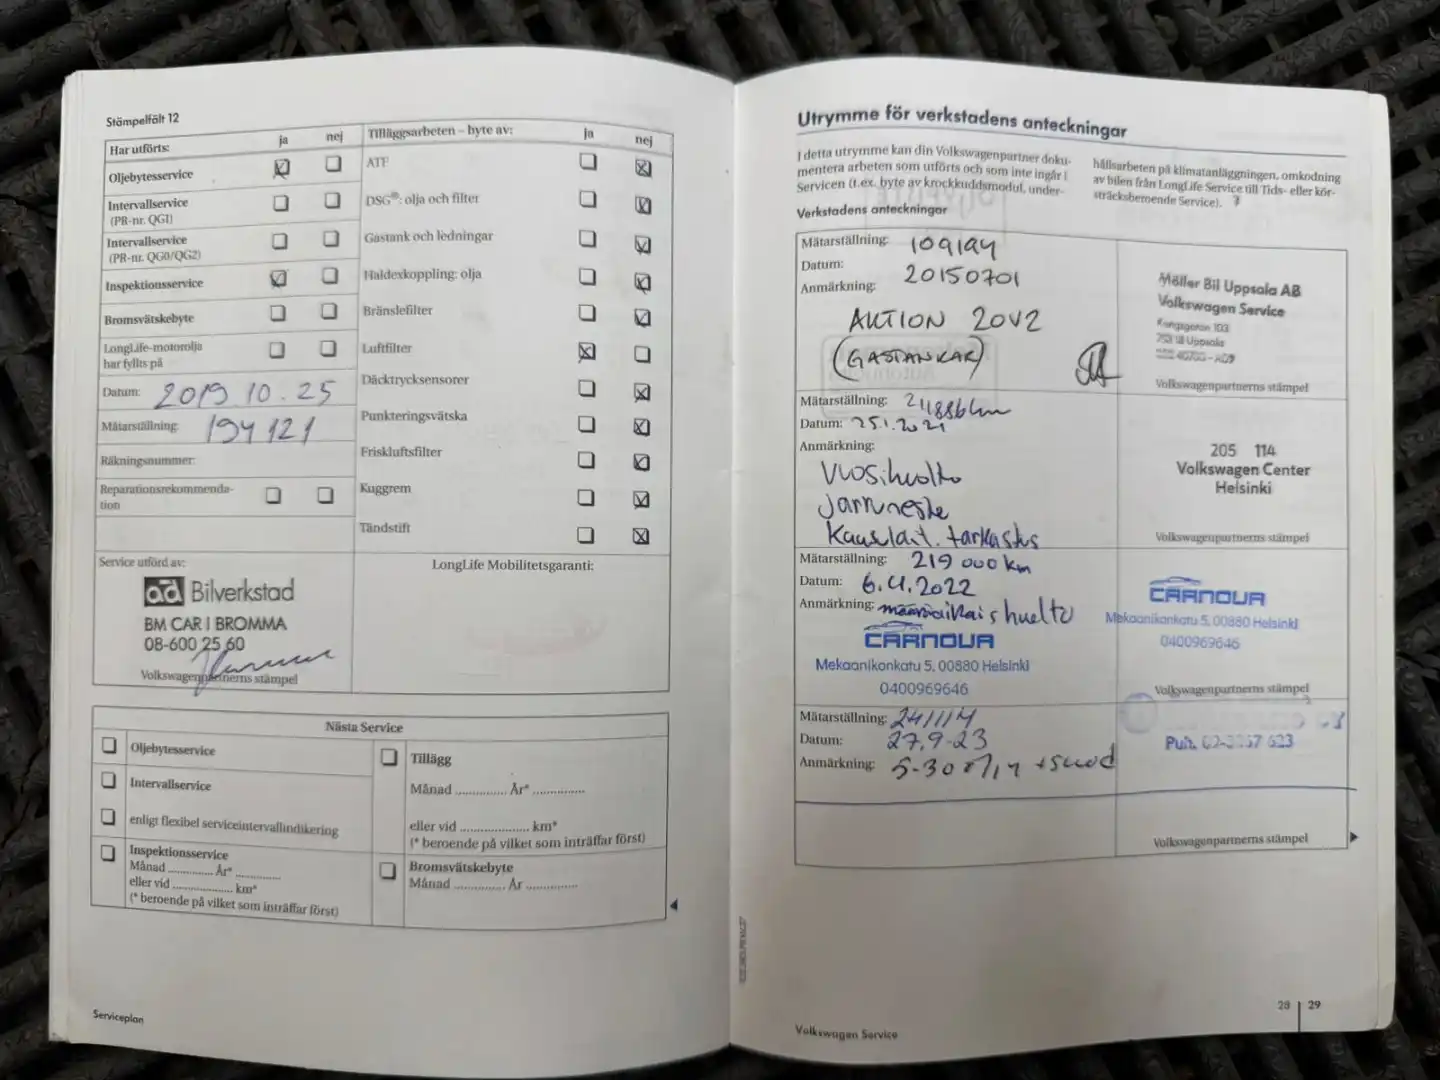 Stämpelfält 12
Har utförts: ja nej
Oljebytesservice
Intervallservice
(PR-nr. QG1)
Intervallservice
(PR-nr. QG0/QG2)
Inspektionsservice
Bromsvätskebyte
LongLife-motorolja
har fyllts på
Datum: 2019 10. 25
Mätarställning: 194 121
Räkningsnummer:
Reparationsrekommenda-
tion
Tilläggsarbeten – byte av: ja nej
ATF
DSG®: olja och filter
Gastank och ledningar
Haldexkoppling: olja
Bränslefilter
Luftfilter
Däcktrycksensorer
Punkteringsvätska
Friskluftsfilter
Kuggrem
Tändstift
Service utförd av:
ad Bilverkstad
BM CAR I BROMMA
08-600 25 60
Volkswagenpartnerns stämpel
LongLife Mobilitetsgaranti:
Nästa Service
Oljebytesservice
Intervallservice
enligt flexibel serviceintervallindikering
Inspektionsservice
Månad ............ År* ............
eller vid ................ km*
(* beroende på vilket som inträffar först)
Tillägg
Månad ............ År* ............
eller vid ................ km*
(* beroende på vilket som inträffar först)
Bromsvätskebyte
Månad ............ År ............
Serviceplan
Utrymme för verkstadens anteckningar
I detta utrymme kan din Volkswagenpartner doku-
mentera arbeten som utförts och som inte ingår i
Servicen (t.ex. byte av krockkuddsmodul, under-
hållsarbeten på klimatanläggningen, omkodning
av bilen från LongLife Service till Tids- eller kör-
sträcksberoende Service).
Verkstadens anteckningar
Mätarställning: 109194
Datum: 20150701
Anmärkning:
AKTION 20V2
(GASTANKAR)
Möller Bil Uppsala AB
Volkswagen Service
Kungsgatan 103
Volkswagenpartnerns stämpel
Mätarställning: 211886km
Datum: 25.1.2021
Anmärkning:
Vuosihuolto
Jarruneste
Kaasulait. tarkastus
205 114
Volkswagen Center
Helsinki
Volkswagenpartnerns stämpel
Mätarställning: 219 000 km
Datum: 6.4.2022
Anmärkning: määräaikaishuolto
CARNOVA
Mekaanikonkatu 5, 00880 Helsinki
0400969646
CARNOVA
Mekaanikonkatu 5, 00880 Helsinki
0400969646
Volkswagenpartnerns stämpel
Mätarställning: 241114
Datum: 27.9-23
Anmärkning: 5-30
Volkswagenpartnerns stämpel
Volkswagen Service
28 | 29